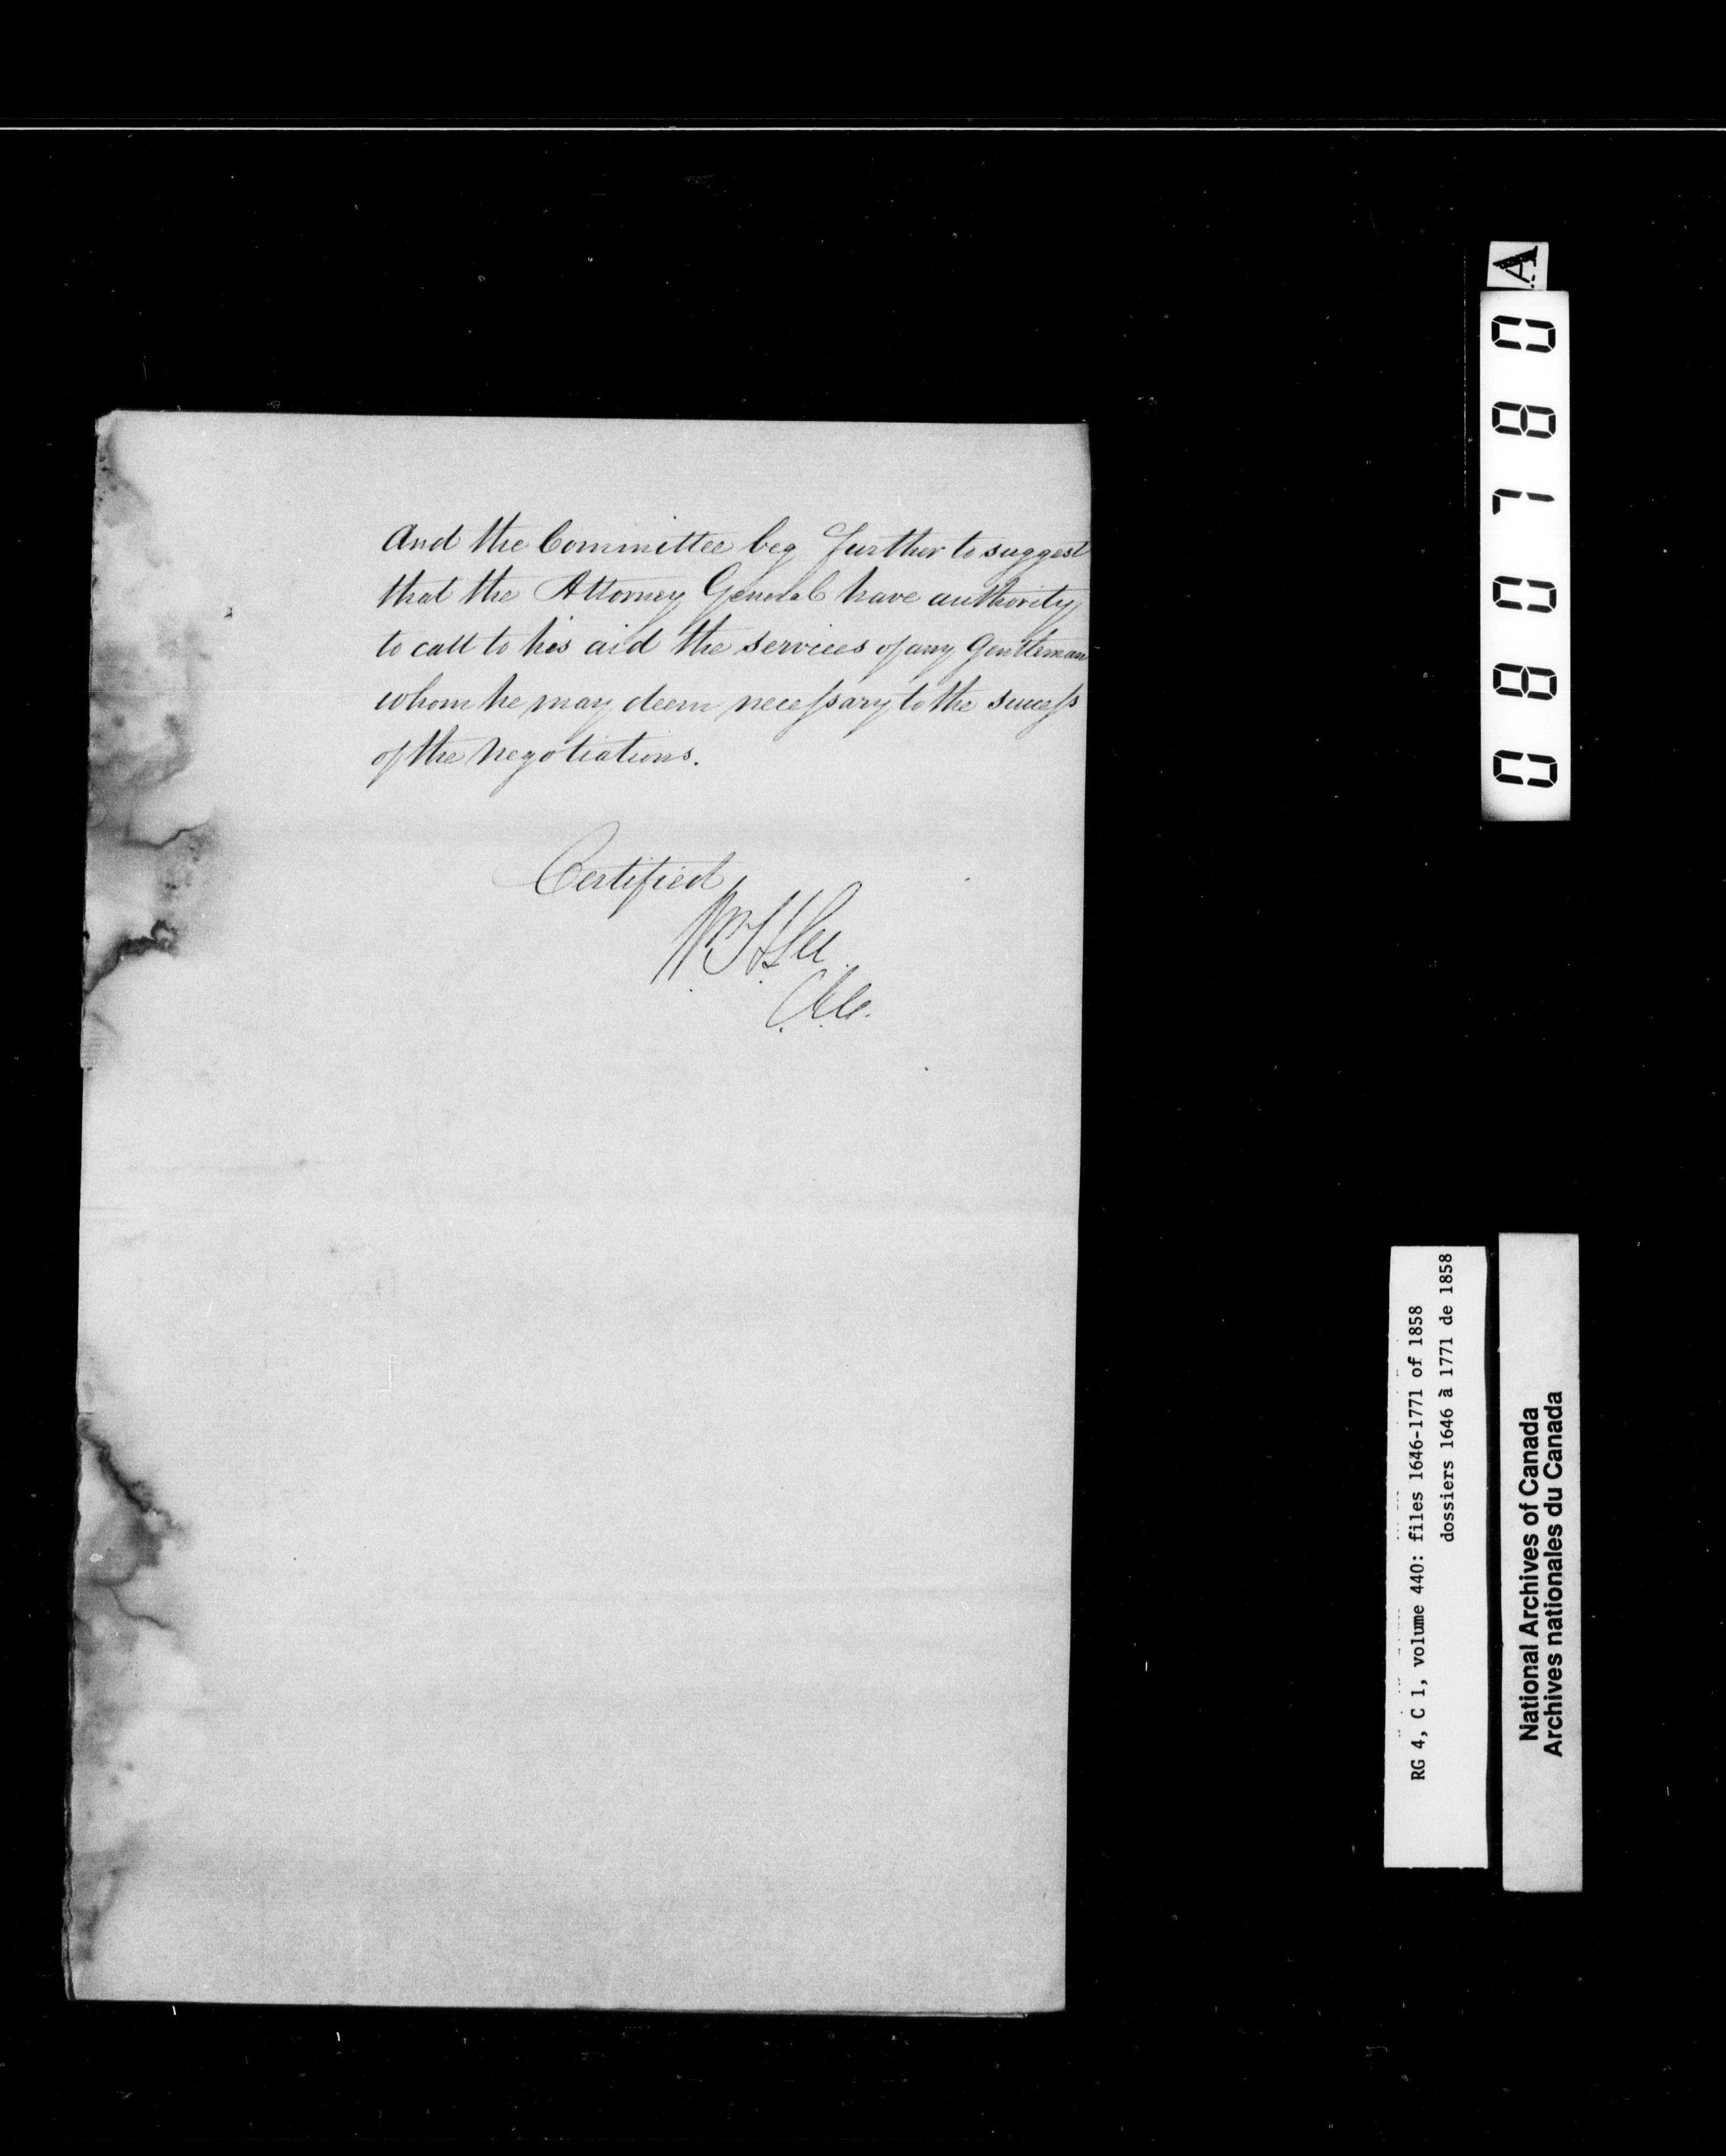 And the Committee beg further to suggest
that the Attorney General have authority
to call to his aid the services of any Gentleman
whom he may deem necessary to the success
of the negotiations.
Certified
Wm H Lee
C.E.C.
A
080780
RG 4, C 1, volume 440: files 1646-1771 of 1858
dossiers 1646 à 1771 de 1858
National Archives of Canada
Archives nationales du Canada